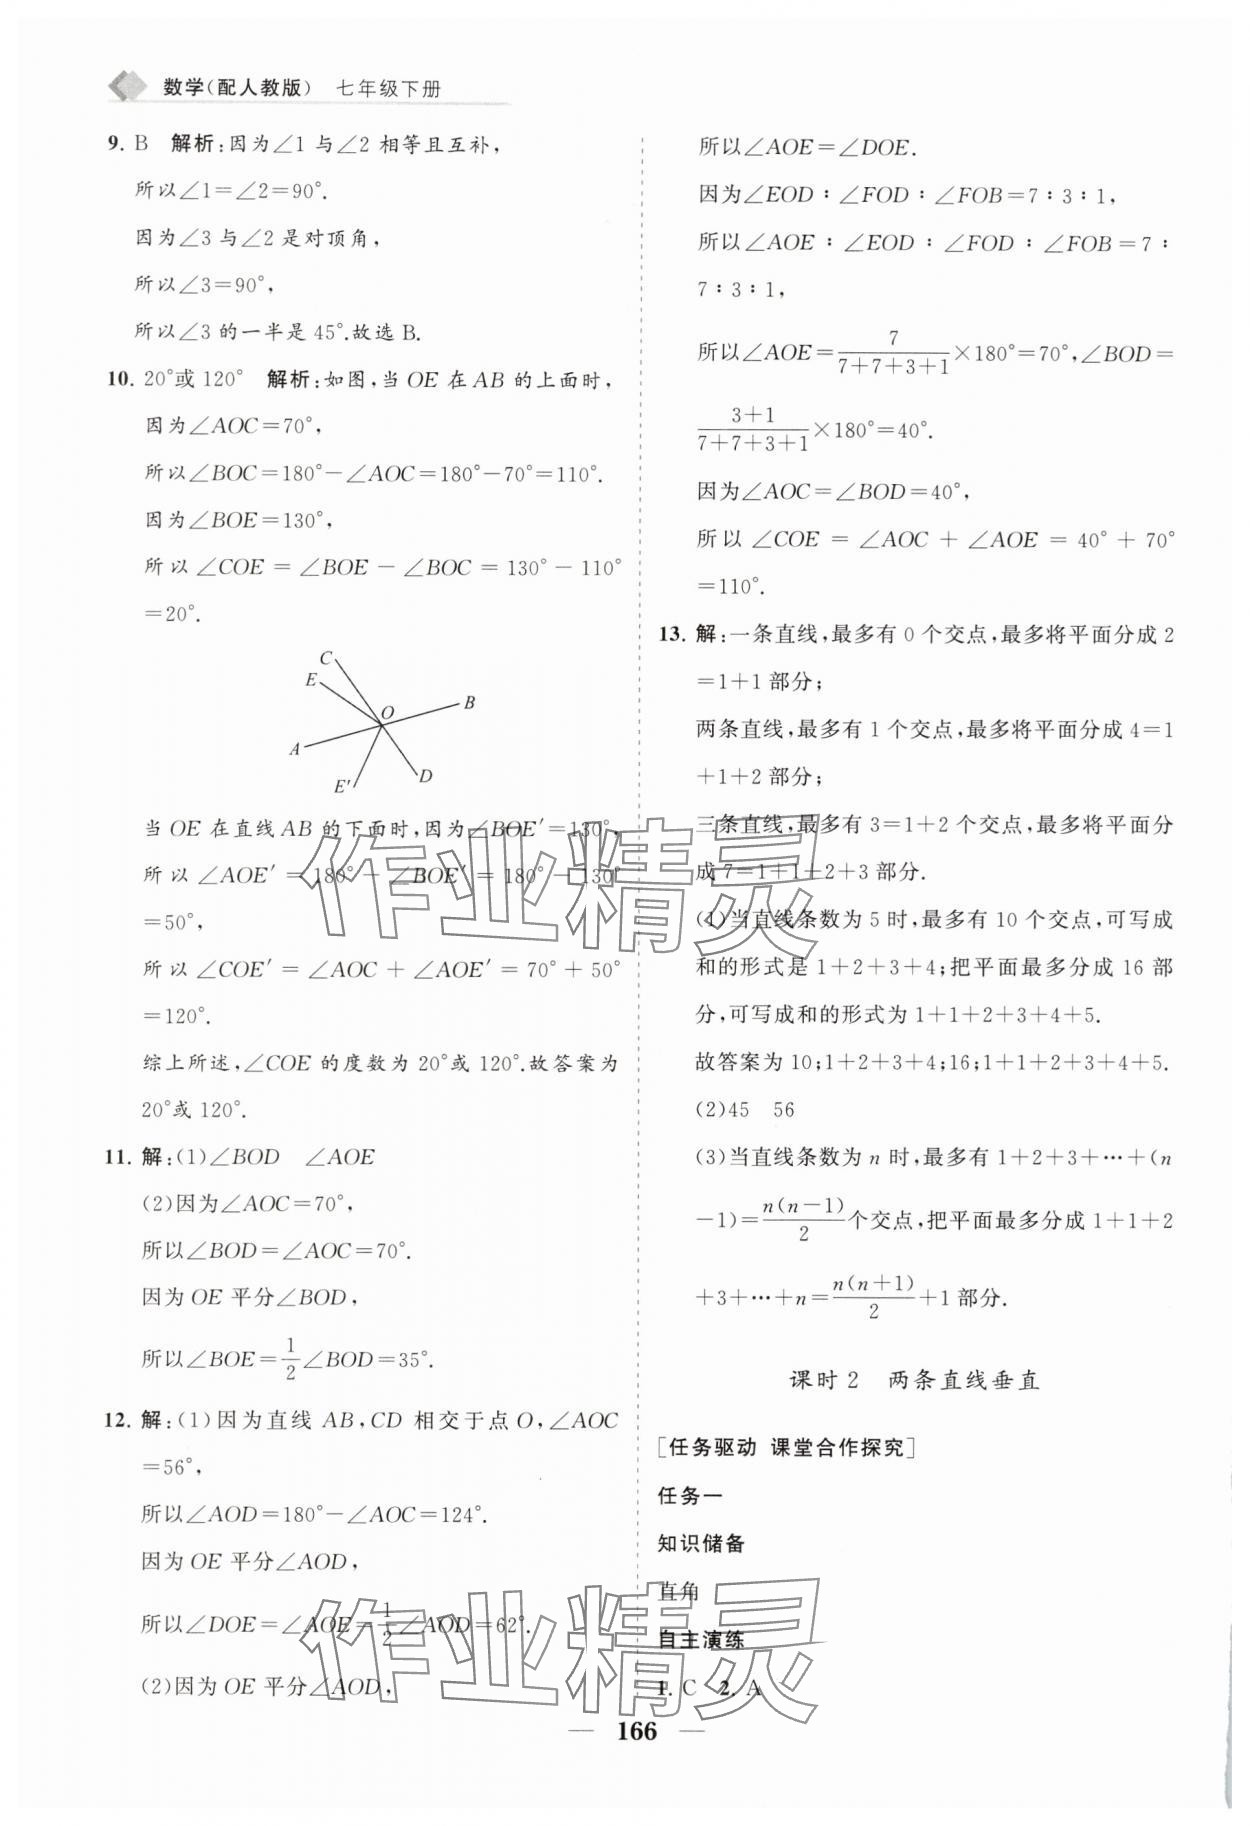 数学(配人教版) 七年级下册
9. B 解析:因为∠1与∠2相等且互补,
所以∠1=∠2=90°.
因为∠3与∠2是对顶角,
所以∠3=90°,
所以∠3的一半是45°.故选B.
10. 20°或120° 解析:如图,当OE在AB的上面时,
因为∠AOC=70°,
所以∠BOC=180°-∠AOC=180°-70°=110°.
因为∠BOE=130°,
所以∠COE=∠BOE-∠BOC=130°-110°
=20°.
C
E
O
B
A
D
E′
当OE在直线AB的下面时,因为∠BOE′=130°,
所以∠AOE′=180°-∠BOE′=180°-130°
=50°,
所以∠COE′=∠AOC+∠AOE′=70°+50°
=120°.
综上所述,∠COE的度数为20°或120°.故答案为
20°或120°.
11. 解:(1)∠BOD ∠AOE
(2)因为∠AOC=70°,
所以∠BOD=∠AOC=70°.
因为OE平分∠BOD,
所以∠BOE=1/2∠BOD=35°.
12. 解:(1)因为直线AB,CD相交于点O,∠AOC
=56°,
所以∠AOD=180°-∠AOC=124°.
因为OE平分∠AOD,
所以∠DOE=∠AOE=1/2∠AOD=62°.
(2)因为OE平分∠AOD,
所以∠AOE=∠DOE.
因为∠EOD∶∠FOD∶∠FOB=7∶3∶1,
所以∠AOE∶∠EOD∶∠FOD∶∠FOB=7∶
7∶3∶1,
所以∠AOE=7/(7+7+3+1)×180°=70°,∠BOD=
(3+1)/(7+7+3+1)×180°=40°.
因为∠AOC=∠BOD=40°,
所以∠COE=∠AOC+∠AOE=40°+70°
=110°.
13. 解:一条直线,最多有0个交点,最多将平面分成2
=1+1部分;
两条直线,最多有1个交点,最多将平面分成4=1
+1+2部分;
三条直线,最多有3=1+2个交点,最多将平面分
成7=1+1+2+3部分.
(1)当直线条数为5时,最多有10个交点,可写成
和的形式是1+2+3+4;把平面最多分成16部
分,可写成和的形式为1+1+2+3+4+5.
故答案为10;1+2+3+4;16;1+1+2+3+4+5.
(2)45 56
(3)当直线条数为n时,最多有1+2+3+…+(n
-1)=n(n-1)/2个交点,把平面最多分成1+1+2
+3+…+n=n(n+1)/2+1部分.
课时2 两条直线垂直
[任务驱动 课堂合作探究]
任务一
知识储备
直角
自主演练
1. C 2. A
— 166 —
作业精灵
作业精灵